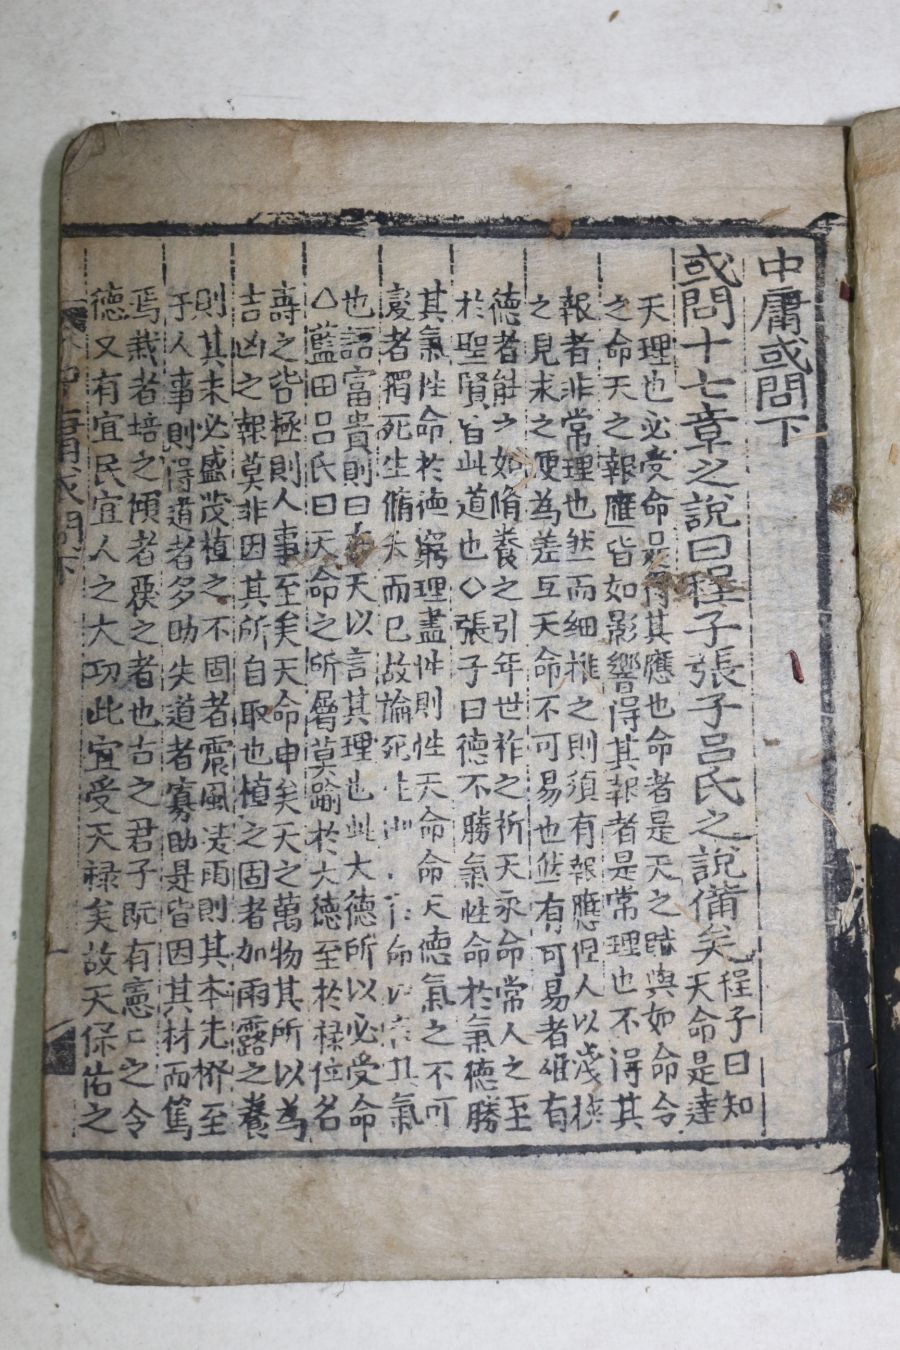 中庸或問下
或問十七章之說曰程子張子呂氏之說備矣
程子曰知
天命是達
天理也必受命是得其應也命者是天之賦與如命令
之命天之報應皆如影響得其報者是常理也不得其
報者非常理也然而細推之則須有報應但人以淺狹
之見求之便為差互天命不可易也然有可易者惟有
德者能之如脩養之引年世祚之祈天永命常人之至
於聖賢皆此道也〇張子曰德不勝氣性命於氣德勝
其氣性命於德窮理盡性則性天命命天德氣之不可
變者獨死生脩夭而已故論死生則曰有命以言其氣
也語富貴則曰在天以言其理也此大德所以必受命
△藍田呂氏曰天命之所屬莫踰於大德至於祿位名
壽之皆極則人事至矣天命申矣天之萬物其所以為
吉凶之報莫非因其所自取也植之固者加雨露之養
則其末必盛茂植之不固者震風凌雨則其本先撥至
于人事則得道者多助失道者寡助是皆因其材而篤
焉栽者培之傾者覆之者也古之君子既有憲之令
德又有宜民宜人之大功此宜受天祿矣故天保佑之
中庸或問下